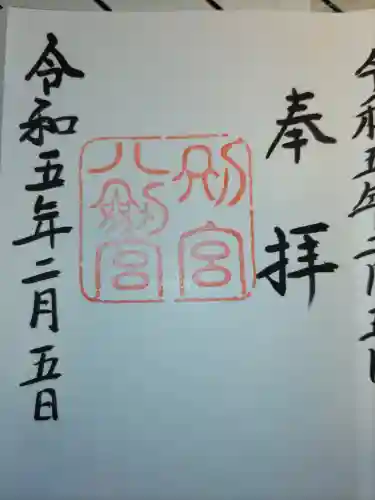 令和五年二月五日
奉拝
別宮
八劔宮
令和五年二月五日